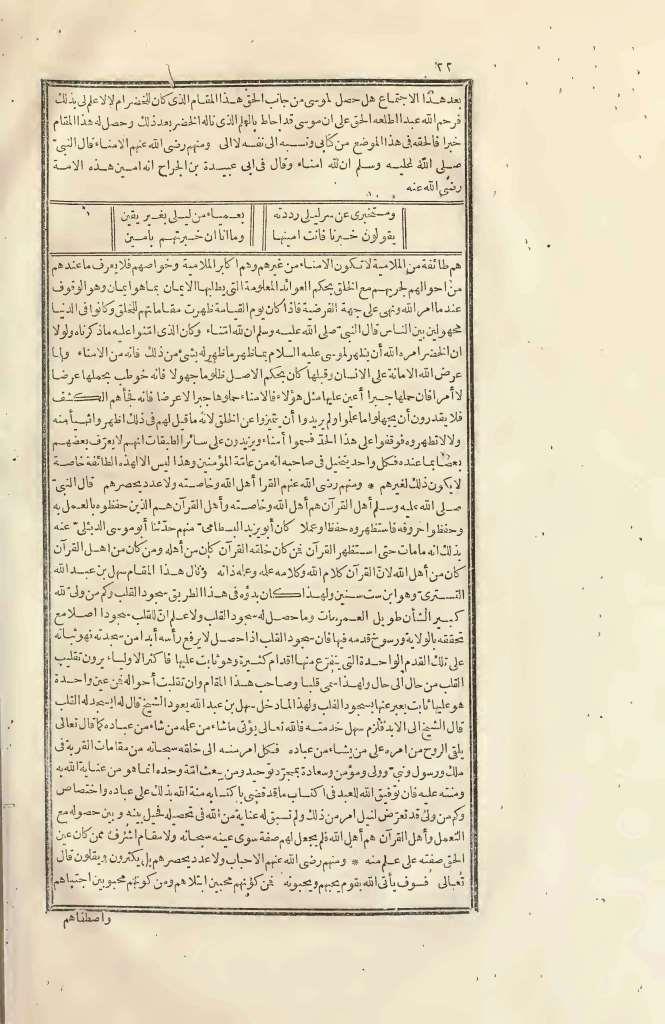 ٢٢
بعد هذا الاجتماع هل حصل لموسى من جانب الحق هذا المقام الذى كان للخضر ام لا لاعلم لى بذلك
فرحم الله عبدا اطلعه الحق على ان موسى قد احاط بالعلم الذى ناله الخضر بعد ذلك وحصل له هذا المقام
خبرا فالحقه فى هذا الموضع من كتابى ونسبه الى نفسه لا الى ومنهم رضى الله عنهم الامناء قال النبى
صلى الله عليه وسلم ان لله امناء وقال فى ابى عبيدة بن الجراح انه امين هذه الامة
رضى الله عنه
ومستخبرى عن سر ليلى رددته بعمياء من ليلى بغير يقين
يقولون خبرنا فانت امينها وما انا ان خبرتهم بامين
هم طائفة من الملامية لا تكون الامناء من غيرهم وهم اكابر الملامية وخواصهم فلا يعرف ما عندهم
من احوالهم لجريهم مع الخلق بحكم العوائد المعلومة التى يطلبها الايمان بما هو ايمان وهو الوقوف
عند ما امر الله ونهى على جهة الفرضية فاذا كان يوم القيامة ظهرت مقاماتهم للخلق وكانوا فى الدنيا
مجهولين بين الناس قال النبى صلى الله عليه وسلم ان لله امناء وكان الذى امنوا عليه ما ذكرناه ولولا
ان الخضر امره الله أن يظهر لموسى عليه السلام بما ظهر ما ظهر له بشىء من ذلك فانه من الامناء ولما
عرض الله الامانة على الانسان وقبلها كان بحكم الاصل ظلوما جهولا فانه خوطب بحملها عرضا
لا أمرا فان حملها جبرا أعين عليها مثل هؤلاء فالامناء حملوها جبرا لا عرضا فانه فجأهم الكشف
فلا يقدرون أن يجهلوا ما علموا ولم يريدوا أن يتميزوا عن الخلق لانه ما قيل لهم فى ذلك اظهروا شيأ منه
ولا لا تظهروه فوقفوا على هذا الحد فسموا أمناء ويزيدون على سائر الطبقات انهم لا يعرف بعضهم
بعضا بما عنده فكل واحد يتخيل فى صاحبه انه من عامة المؤمنين وهذا ليس الا لهذه الطائفة خاصة
لا يكون ذلك لغيرهم * ومنهم رضى الله عنهم القراء أهل الله وخاصته ولا عدد يحصرهم قال النبى
صلى الله عليه وسلم أهل القرآن هم أهل الله وخاصته وأهل القرآن هم الذين حفظوه بالعمل به
وحفظوا حروفه فاستظهروه حفظا وعملا كان أبو يزيد البسطامى منهم حدثنا أبو موسى الدبيلى عنه
بذلك انه ما مات حتى استظهر القرآن فمن كان خلقه القرآن كان من أهله ومن كان من اهل القرآن
كان من أهل الله لان القرآن كلام الله وكلامه علمه وعلمه ذاته ونال هذا المقام سهل بن عبد الله
التسترى وهو ابن ست سنين ولهذا كان بدؤه فى هذا الطريق سجود القلب وكم من ولى لله
كبير الشأن طويل العمر مات وما حصل له سجود القلب ولا علم ان للقلب سجودا اصلا مع
تحققه بالولاية ورسوخ قدمه فيها فان سجود القلب اذا حصل لا يرفع رأسه أبدا من سجدته فهو ثباته
على تلك القدم الواحدة التى يتفرع منها أقدام كثيرة وهو ثابت عليها فاكثر الاولياء يرون تقليب
القلب من حال الى حال ولهذا سمى قلبا وصاحب هذا المقام وان تقلبت أحواله فمن عين واحدة
هو عليها ثابت يعبر عنها بسجود القلب ولهذا لما دخل سهل بن عبد الله يعود الشيخ قال له ايسجد القلب
قال الشيخ الى الابد فلزم سهل خدمته فالله تعالى يؤتى ما شاء من علمه من شاء من عباده كما قال تعالى
يلقى الروح من امره على من يشاء من عباده فكل امر منه الى خلقه سبحانه من مقامات القربة فى
ملك ورسول ونبى وولى ومؤمن وسعادة بمجرد توحيد ومن يبعث امة وحده انما هو من عناية الله به
ومنته عليه فان توفيق الله للعبد فى اكتساب ما قد قضى باكتسابه منة الله بذلك على عباده واختصاص
وكم من ولى قد تعرض لنيل امر من ذلك ولم تسبق له عناية من الله فى تحصيله فحيل بينه وبين حصوله مع
التعمل وأهل القرآن هم أهل الله فلم يجعل لهم صفة سوى عينه سبحانه ولا مقام اشرف ممن كان عين
الحق صفته على علم منه * ومنهم رضى الله عنهم الاحباب ولا عدد يحصرهم بل يكثرون ويقلون قال
تعالى فسوف يأتى الله بقوم يحبهم ويحبونه فمن كونهم محبين ابتلاهم ومن كونهم محبوبين اجتباهم
واصطفاهم